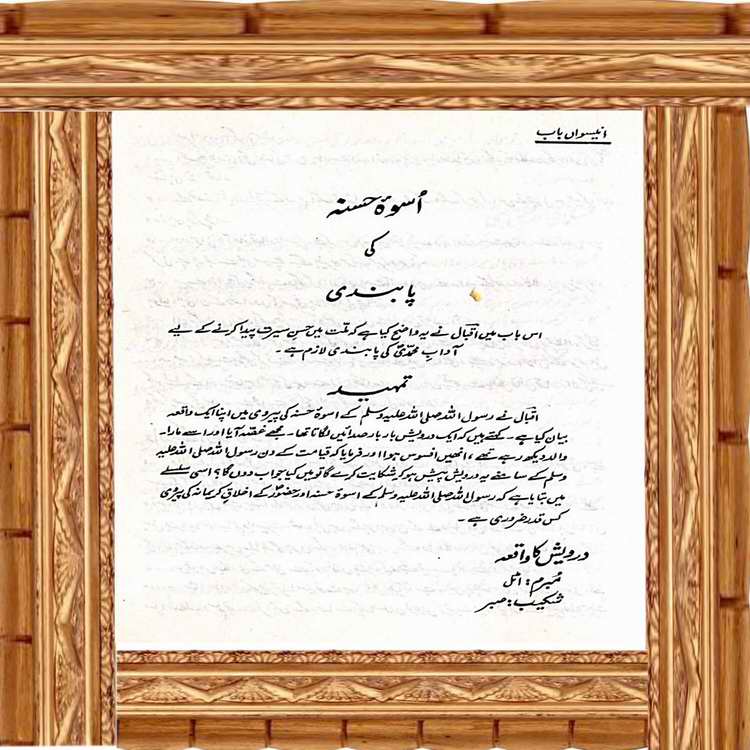 انیسواں باب
اُسوۂ حسنہ
کی
پابندی
اس باب میں اقبال نے یہ واضح کیا ہے کہ ملت میں حسنِ سیرت پیدا کرنے کے لیے
آدابِ محمدیؐ کی پابندی لازم ہے۔
تمہید
اقبال نے رسول اللہ صلی اللہ علیہ وسلم کے اسوۂ حسنہ کی پیروی میں اپنا ایک واقعہ
بیان کیا ہے۔ کہتے ہیں کہ ایک درویش بار بار صدائیں لگاتا تھا۔ مجھے غصہ آیا اور اسے مارا۔
والد دیکھ رہے تھے، انھیں افسوس ہوا اور فرمایا کہ قیامت کے دن رسول اللہ صلی اللہ علیہ
وسلم کے سامنے یہ درویش پیش ہو کر شکایت کرے گا تو میں کیا جواب دوں گا؟ اسی سلسلے
میں بتایا ہے کہ رسول اللہ صلی اللہ علیہ وسلم کے اسوۂ حسنہ اور حضورؐ کے اخلاقِ کریمانہ کی پیروی
کس قدر ضروری ہے۔
درویش کا واقعہ
مُبرم: اٹل
شکیب: صبر